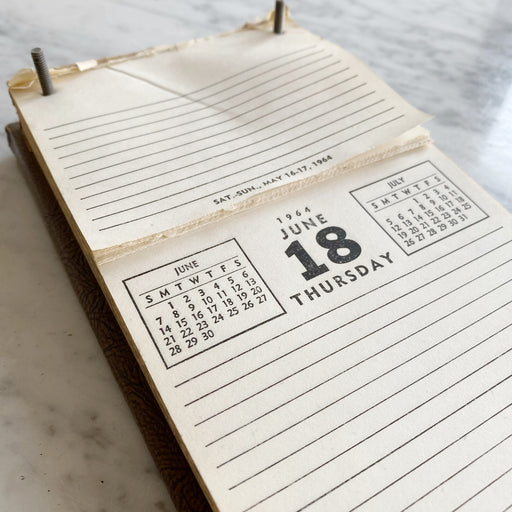 SAT.-SUN., MAY 16-17, 1964
1964
JUNE
18
THURSDAY
JUNE
S M T W T F S
1 2 3 4 5 6
7 8 9 10 11 12 13
14 15 16 17 18 19 20
21 22 23 24 25 26 27
28 29 30
JULY
S M T W T F S
1 2 3 4
5 6 7 8 9 10 11
12 13 14 15 16 17 18
19 20 21 22 23 24 25
26 27 28 29 30 31